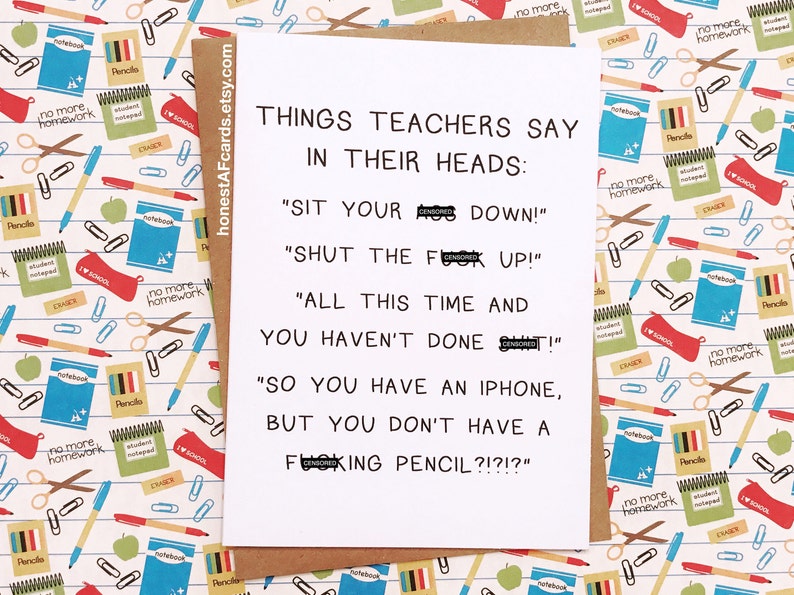 honestAFcards.etsy.com
THINGS TEACHERS SAY
IN THEIR HEADS:
"SIT YOUR CENSORED DOWN!"
"SHUT THE FCENSOREDK UP!"
"ALL THIS TIME AND
YOU HAVEN'T DONE CENSORED!"
"SO YOU HAVE AN IPHONE,
BUT YOU DON'T HAVE A
FCENSOREDKING PENCIL?!?!?"
notebook
A+
Pencils
no more
homework
student
notepad
I ♥ SCHOOL
ERASER